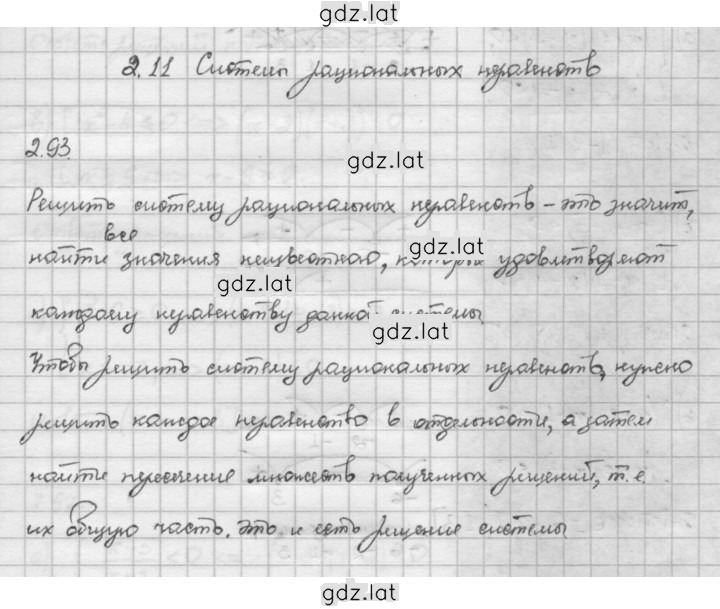 gdz.lat
2.11 Системы рациональных неравенств
2.93.
gdz.lat
Решить систему рациональных неравенств – это значит,
все
найти значения неизвестного, которых удовлетворяют
gdz.lat
gdz.lat
каждому неравенству данной системы
gdz.lat
Чтобы решить систему рациональных неравенств, нужно
решить каждое неравенство в отдельности, а затем
найти пересечение множеств полученных решений, т.е.
их общую часть. Это и есть решение системы
gdz.lat